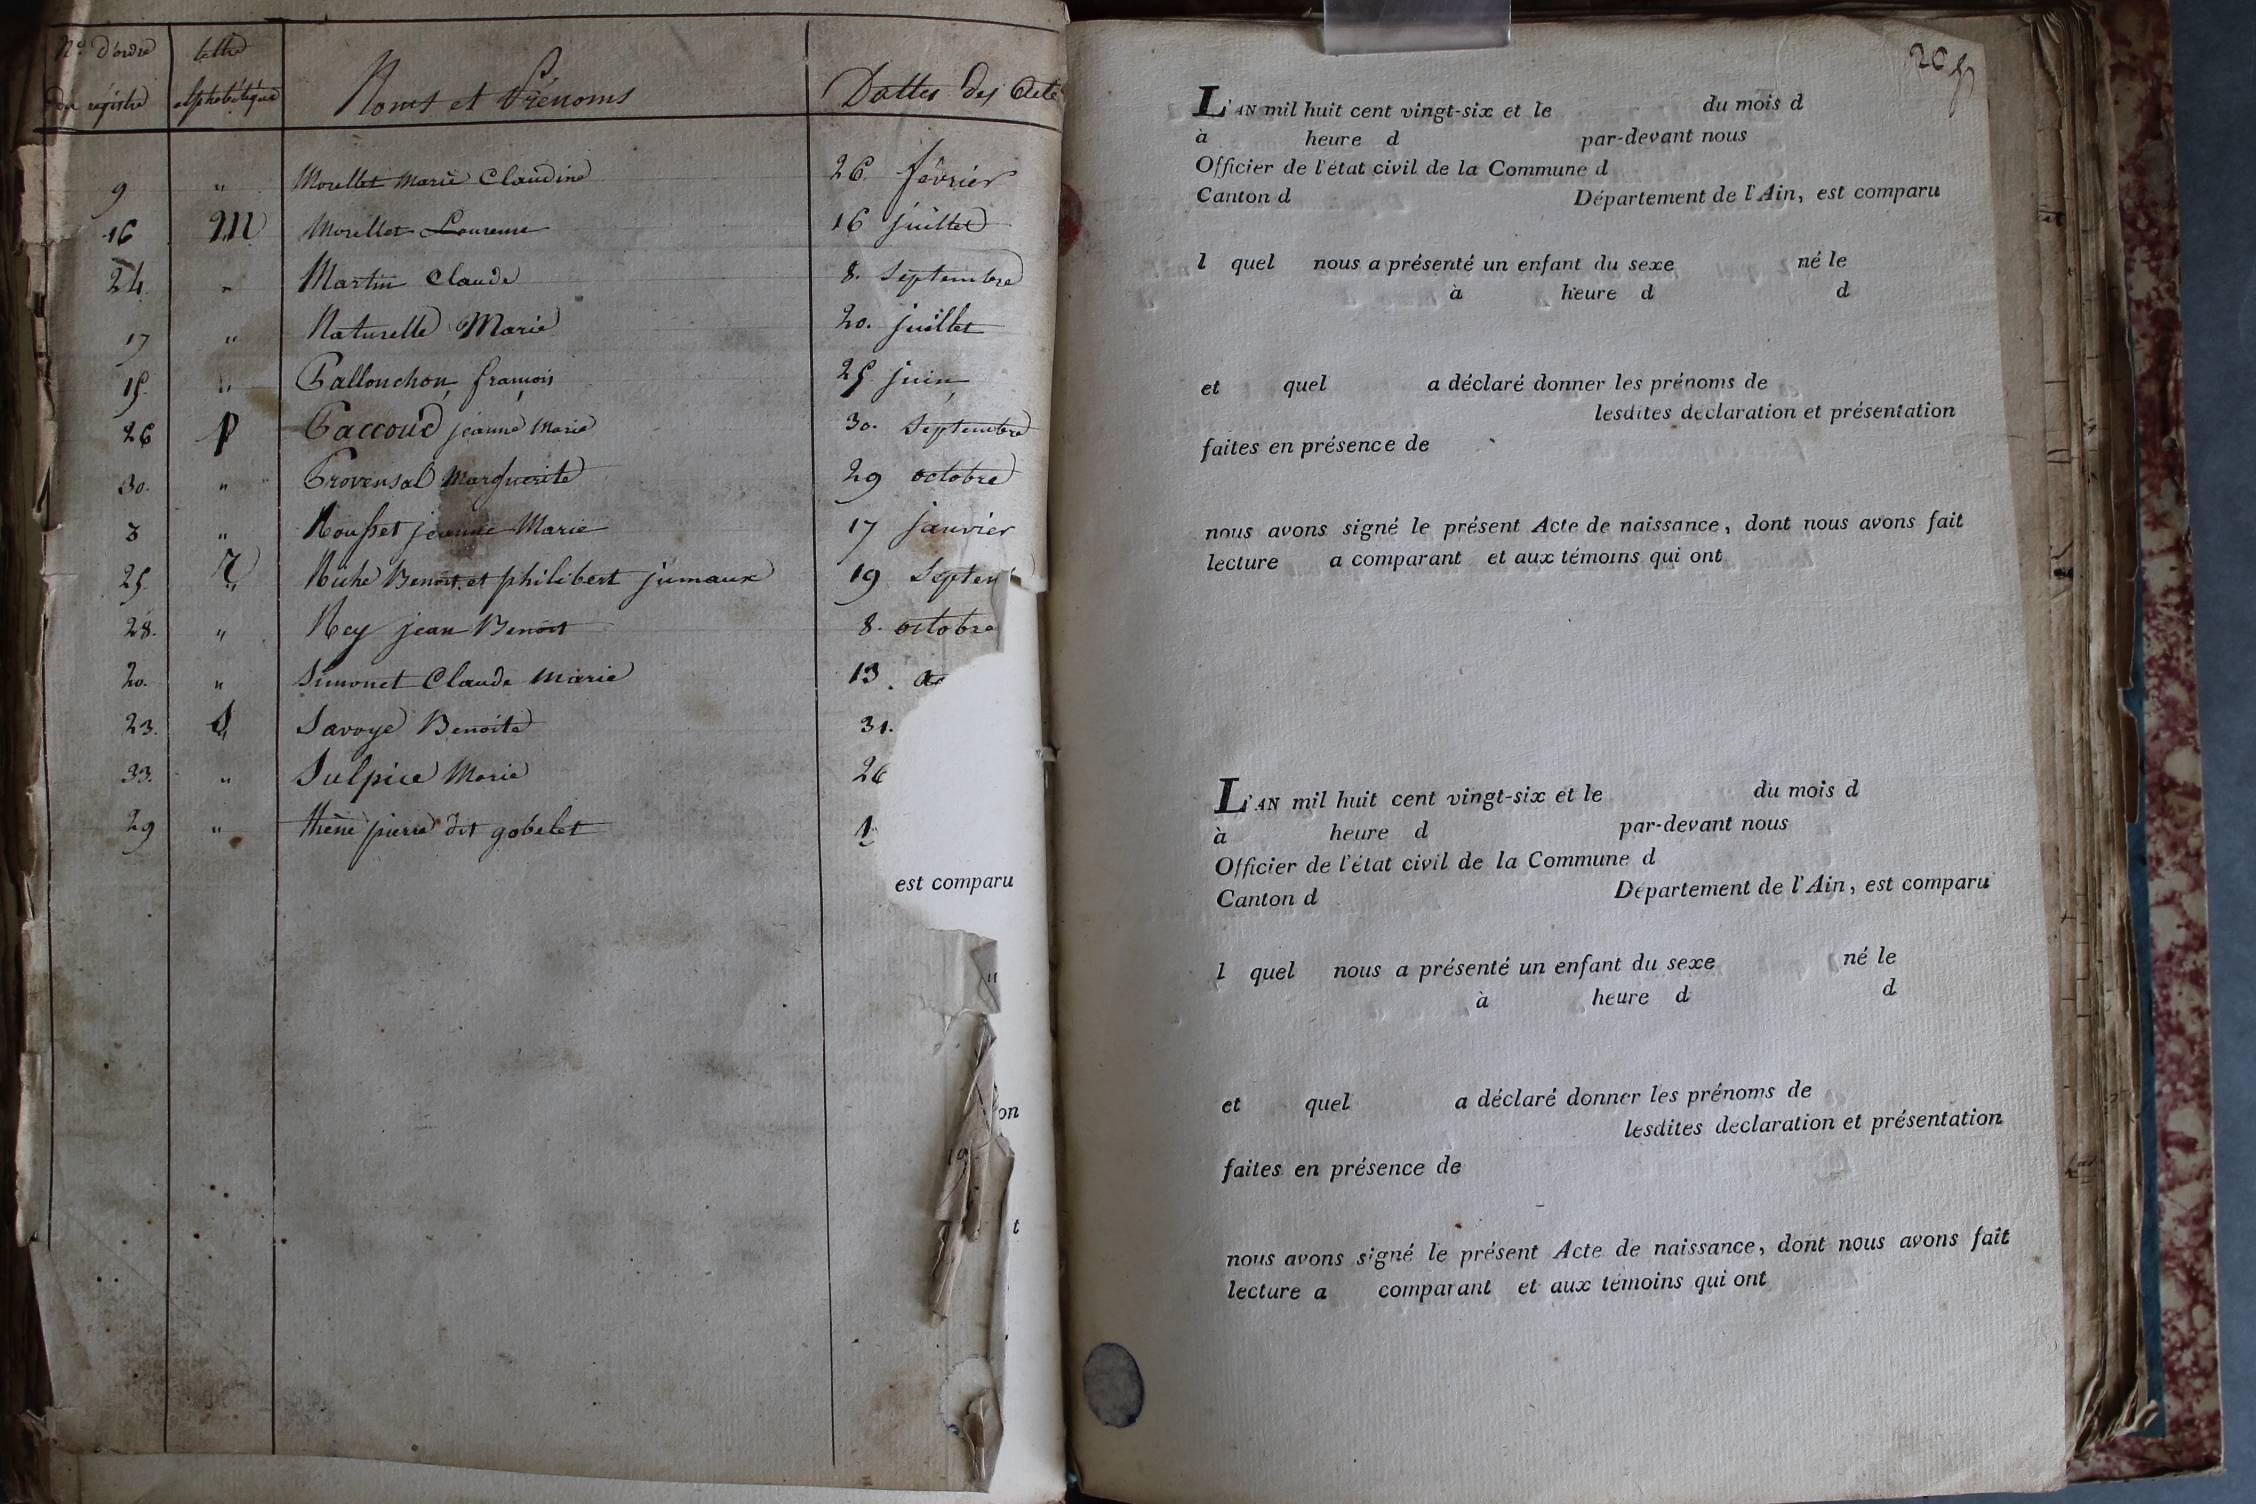 N.º d'ordre lettre Noms et Prénoms Dattes des Acte
du régistre alphabétique
9 " Morellet Marie Claudine 26. février
16 M Morellet Laurence 16 juillet
24. " Martin Claude 8. Septembre
17 " Naturelle Marie 20. juillet
15. " Pallonchon françois 25 juin
26 P Paccoud jeanne Marie 30. Septembre
30. " Provensal Marguerite 29 octobre
3 " Rousset jeanne Marie 17 janvier
25. R Riche Benoit et philibert jumaux 19 Septem
28. " Rey jean Benoit 8. octobre
20. " Simonet Claude Marie 13.
23. S Savoye Benoite 31.
33. " Sulpice Marie 26
29 " thène pierre dit gobelet 1.
est comparu
"
on
t
L'AN mil huit cent vingt-six et le du mois d
à heure d par-devant nous
Officier de l'état civil de la Commune d
Canton d Département de l'Ain, est comparu
l quel nous a présenté un enfant du sexe né le
à heure d d
et quel a déclaré donner les prénoms de
lesdites declaration et présentation
faites en présence de
nous avons signé le présent Acte de naissance, dont nous avons fait
lecture a comparant et aux témoins qui ont
L'AN mil huit cent vingt-six et le du mois d
à heure d par-devant nous
Officier de l'état civil de la Commune d
Canton d Département de l'Ain, est comparu
l quel nous a présenté un enfant du sexe né le
à heure d d
et quel a déclaré donner les prénoms de
lesdites declaration et présentation
faites en présence de
nous avons signé le présent Acte de naissance, dont nous avons fait
lecture a comparant et aux témoins qui ont